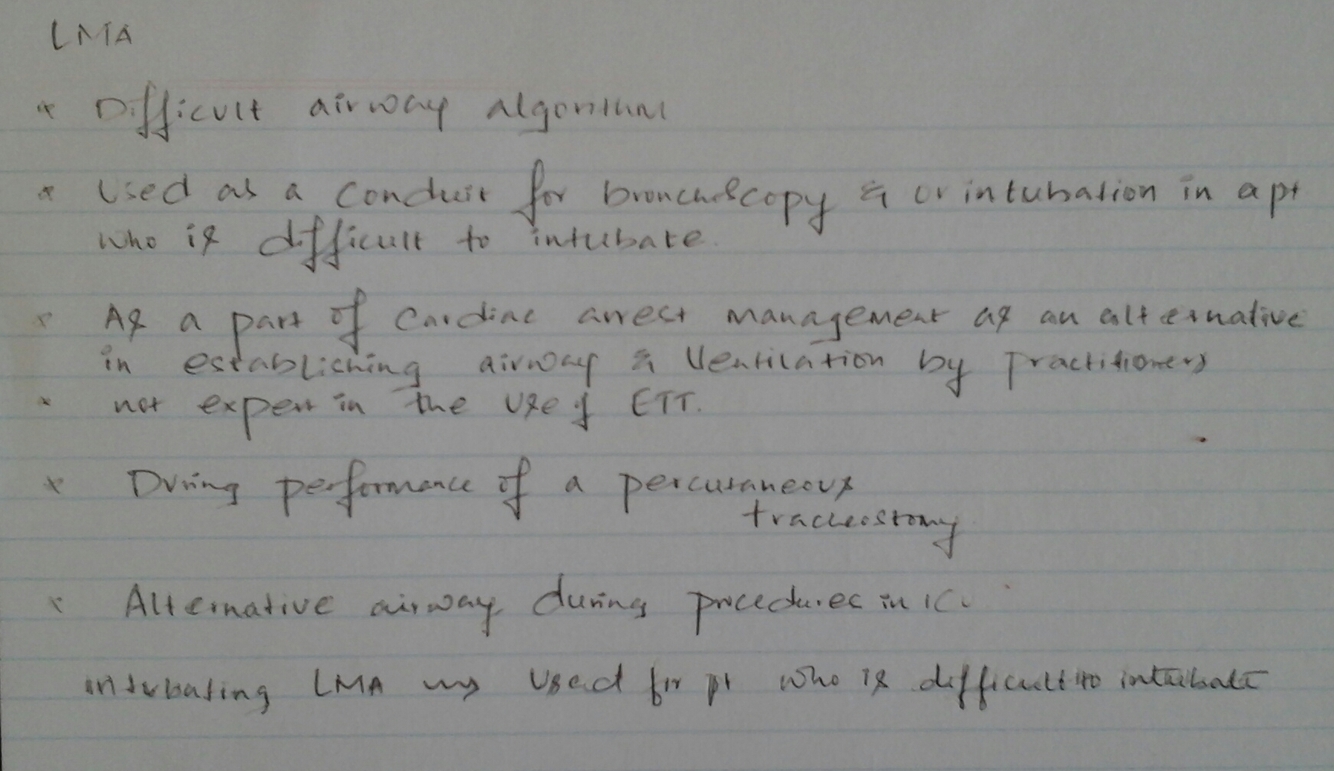 LMA
* Difficult airway algorithm
* Used as a conduit for bronchoscopy & or intubation in a pt
who is difficult to intubate.
* As a part of cardiac arrest management as an alternative
in establishing airway & ventilation by practitioners
* not expert in the use of ETT.
* During performance of a percutaneous
tracheostomy
* Alternative airway during procedures in ICU
intubating LMA used for pt who is difficult to intubate